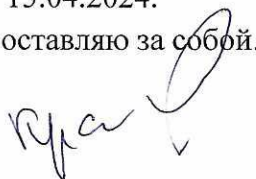 15.04.2024.
оставляю за собой.